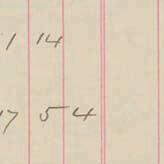 1 14
17 5 4